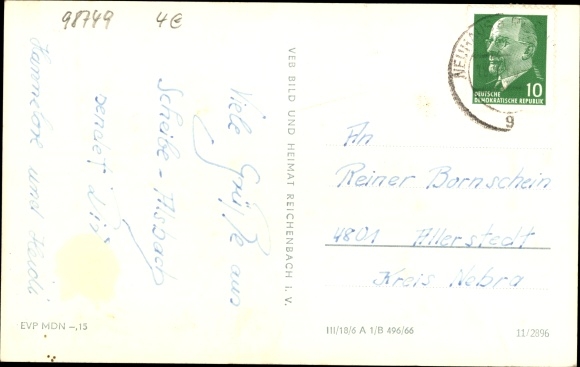 98749 4€
Viele Grüße aus
Scheibe-Alsbach
sendet Dir
Hannelore und Heidi
EVP MDN -,15
VEB BILD UND HEIMAT REICHENBACH i. V.
NEUHAUS
9
10
DEUTSCHE
DEMOKRATISCHE REPUBLIK
An
Reiner Bornschein
4801 Allerstedt
Kreis Nebra
III/18/6 A 1/B 496/66
11/2896